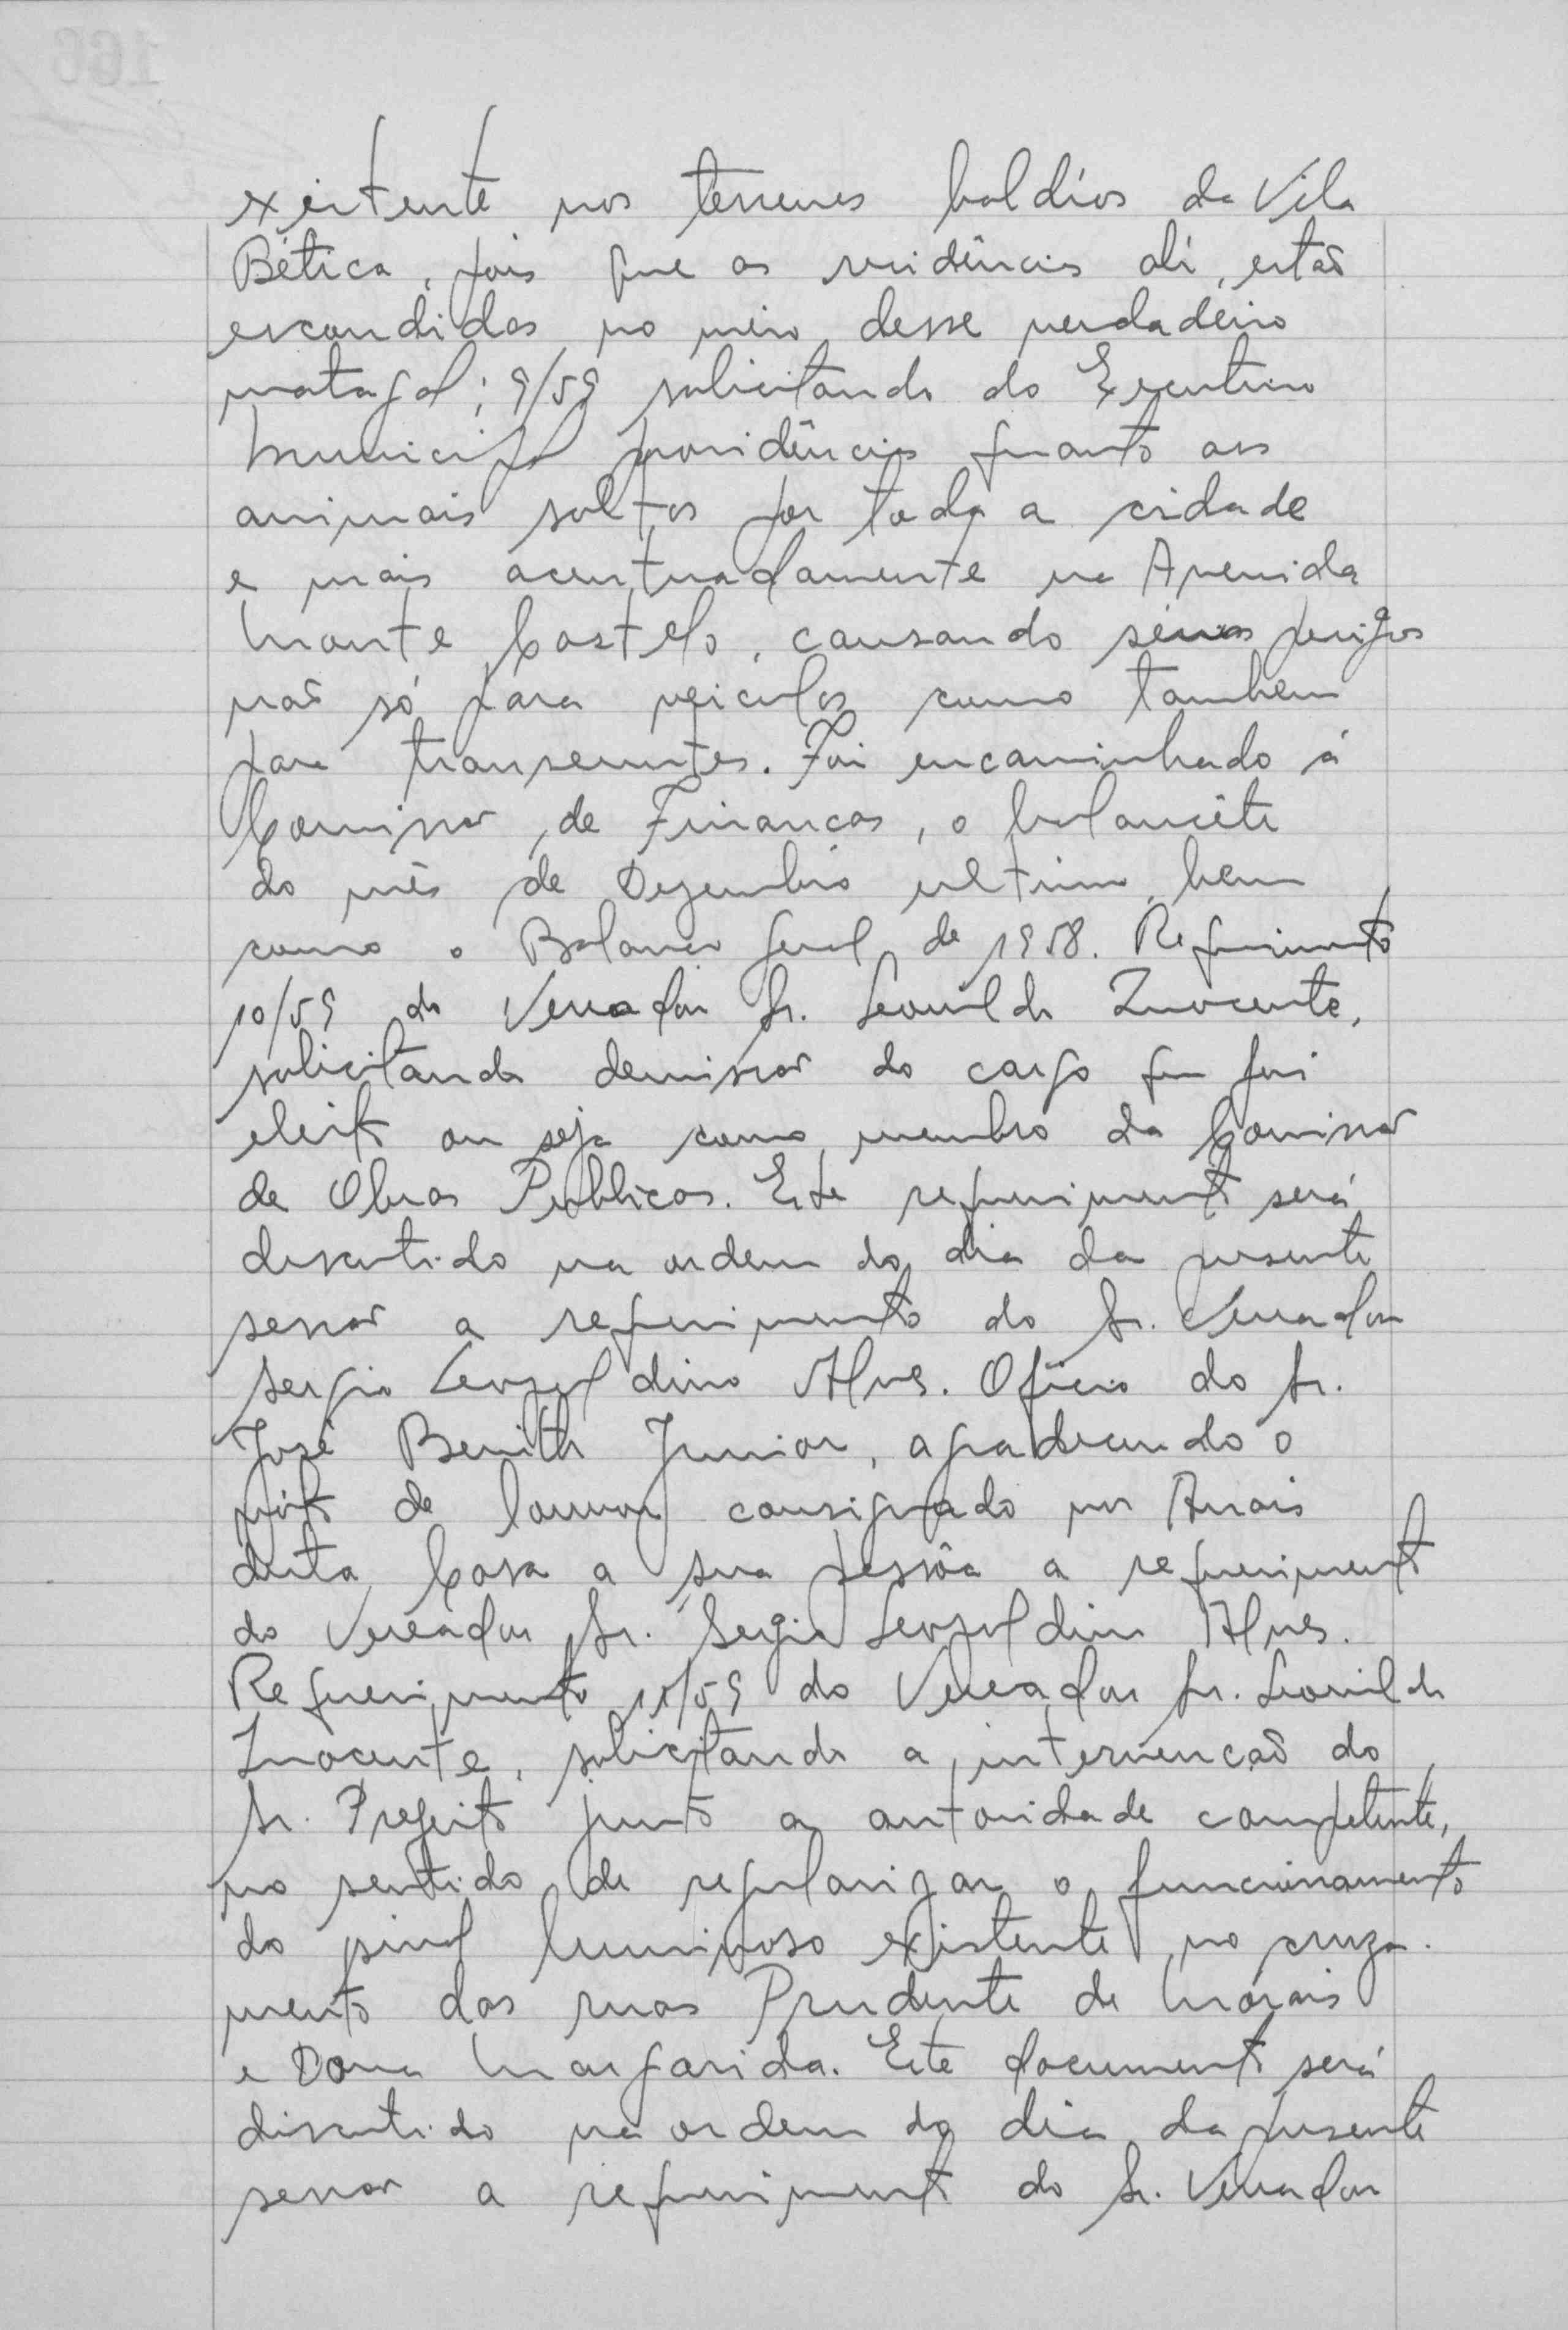 existente nos terrenos baldios da Vila
Bética, pois que as residências ali, estão
escondidas no meio desse verdadeiro
matagal; 9/59 solicitando do Executivo
Municipal providências quanto aos
animais soltos por toda a cidade
e mais acentuadamente na Avenida
Monte Castelo, causando sérios perigos
não só para veiculos como tambem
para transeuntes. Foi encaminhado á
Comissão de Finanças, o balancête
do mês de Dezembro ultimo, bem
como o Balanço geral de 1958. Requerimento
10/59 do Vereador Sr. Leonildo Inocente,
solicitando demissão do cargo que foi
eleito ou seja como membro da Comissão
de Obras Publicas. Este requerimento será
discutido na ordem do dia da presente
sessão a requerimento do Sr. Vereador
Sergio Leopoldino Alves. Oficio do Sr.
José Benito Junior, agradecendo o
vóto de louvor consignado nos Anais
desta Casa a sua pessôa a requerimento
do Vereador Sr. Sergio Leopoldino Alves.
Requerimento 11/59 do Vereador Sr. Leonildo
Inocente, solicitando a intervenção do
Sr. Prefeito junto a autoridade competente,
no sentido de regularizar o funcionamento
do sinal luminoso existente no cruza-
mento das ruas Prudente de Morais
e Dona Margarida. Este documento será
discutido na ordem do dia da presente
sessão a requerimento do Sr. Vereador